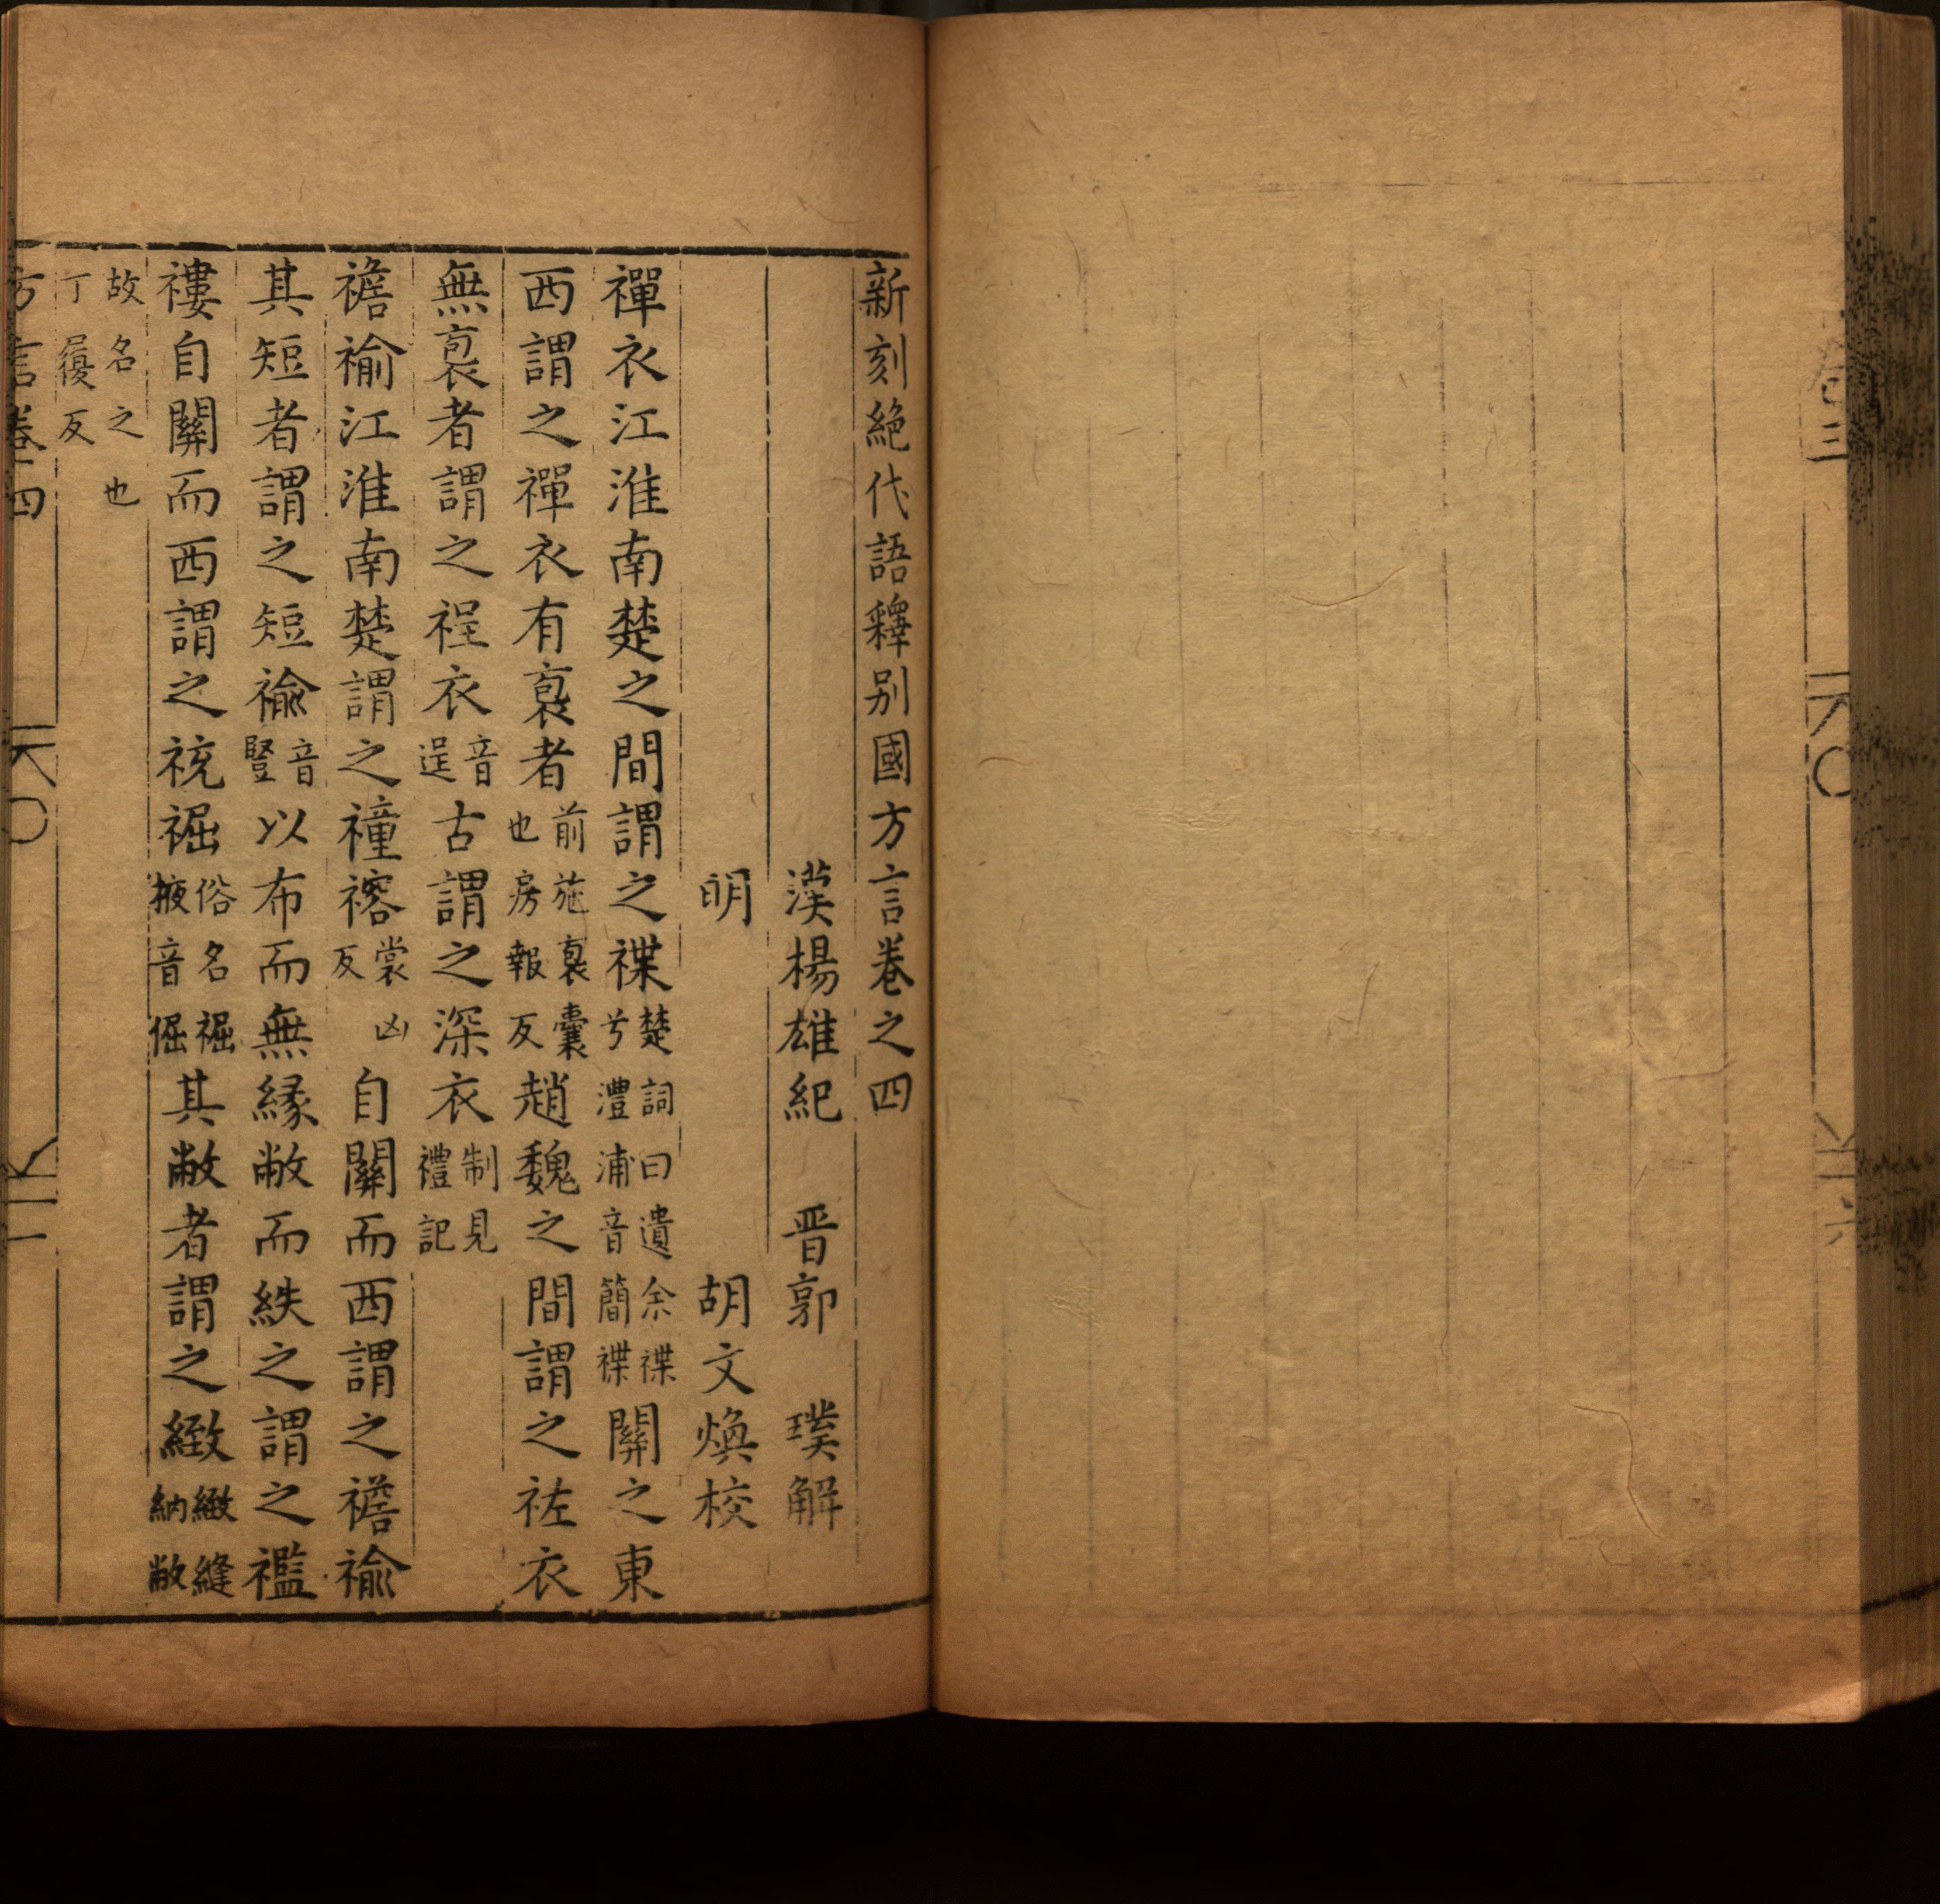 卷三
新刻絶代語釋别國方言卷之四
漢楊雄紀 晋郭 璞解
明 胡文煥校
禪衣江淮南楚之間謂之褋楚詞曰遺余褋兮澧浦音簡褋關之東
西謂之禪衣有裛者前施裛囊也房報反趙魏之間謂之袏衣
無裛者謂之裎衣音逞古謂之深衣制見禮記
襜褕江淮南楚謂之橦褣裳凶反自關而西謂之襜褕
其短者謂之短褕音豎以布而無緣敝而紩之謂之襤
褸自關而西謂之裗裾俗名裾掖音倔其敝者謂之緻緻縫納敝
故名之也丁履反
方言卷四